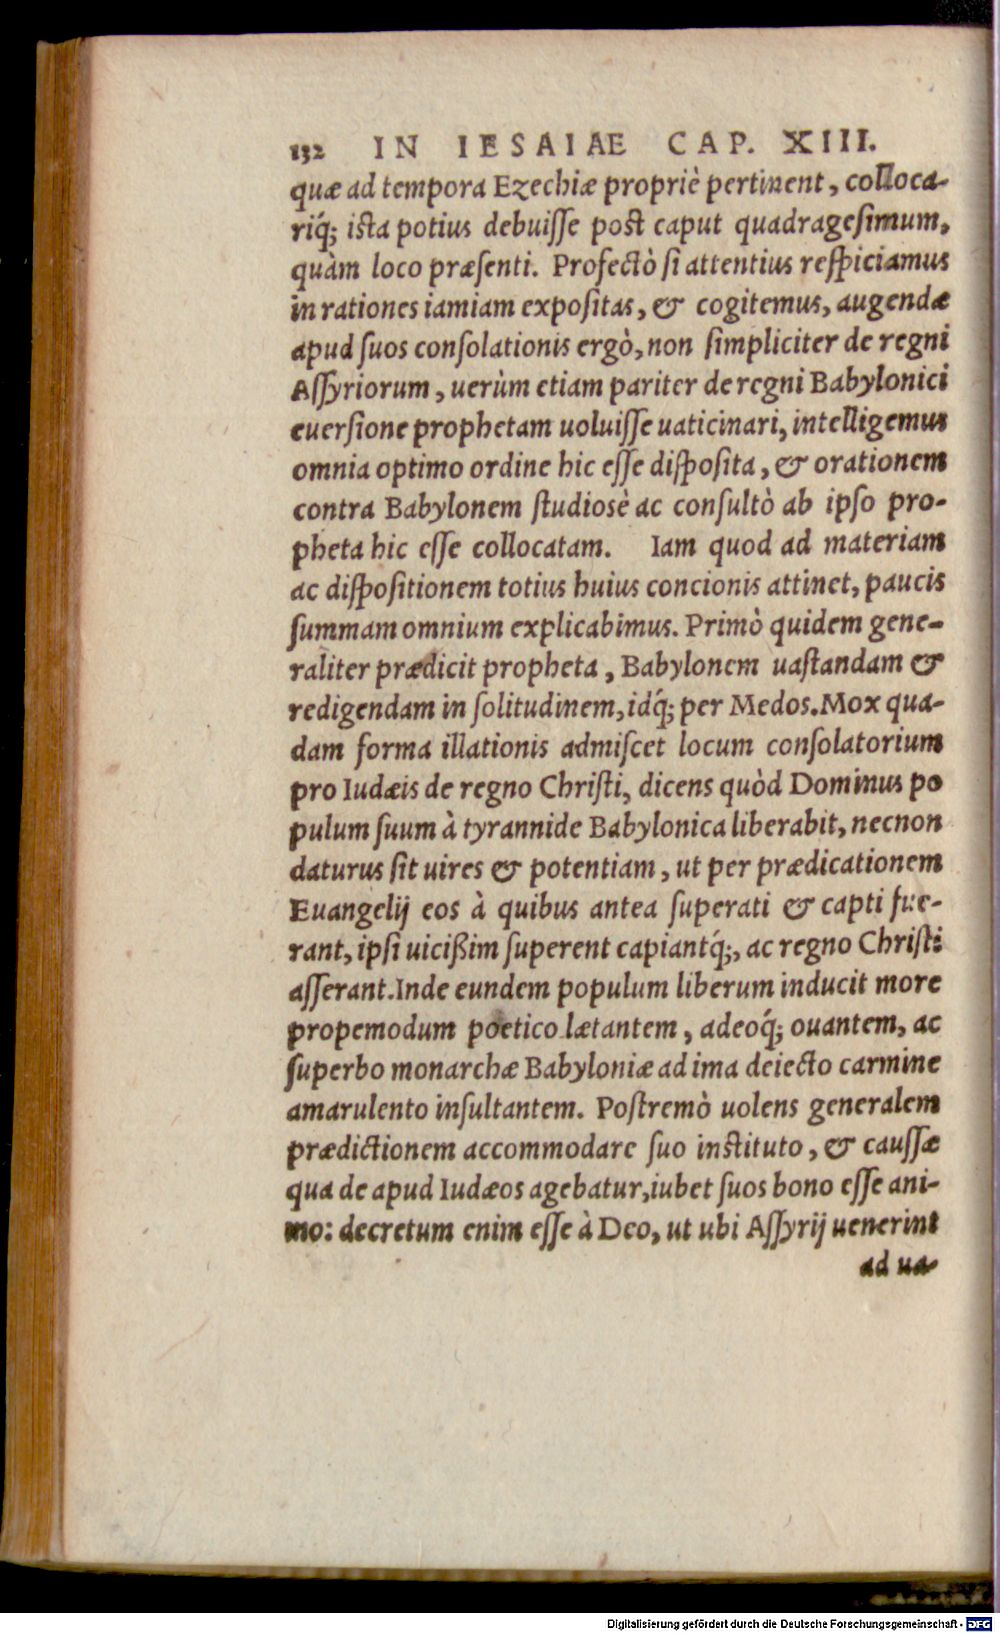 132 IN IESAIAE CAP. XIII.
quæ ad tempora Ezechiæ propriè pertinent, colloca-
riq́; ista potius debuisse post caput quadragesimum,
quàm loco præsenti. Profectò si attentius respiciamus
in rationes iamiam expositas, & cogitemus, augendæ
apud suos consolationis ergò, non simpliciter de regni
Assyriorum, uerùm etiam pariter de regni Babylonici
euersione prophetam uoluisse uaticinari, intelligemus
omnia optimo ordine hic esse disposita, & orationem
contra Babylonem studiosè ac consultò ab ipso pro-
pheta hic esse collocatam. Iam quod ad materiam
ac dispositionem totius huius concionis attinet, paucis
summam omnium explicabimus. Primò quidem gene-
raliter prædicit propheta, Babylonem uastandam &
redigendam in solitudinem, idq́; per Medos. Mox qua-
dam forma illationis admiscet locum consolatorium
pro Iudæis de regno Christi, dicens quòd Dominus po
pulum suum à tyrannide Babylonica liberabit, necnon
daturus sit uires & potentiam, ut per prædicationem
Euangelij eos à quibus antea superati & capti fue-
rant, ipsi uicißim superent capiantq́;, ac regno Christi
asserant. Inde eundem populum liberum inducit more
propemodum poetico lætantem, adeoq́; ouantem, ac
superbo monarchæ Babyloniæ ad ima deiecto carmine
amarulento insultantem. Postremò uolens generalem
prædictionem accommodare suo instituto, & caussæ
qua de apud Iudæos agebatur, iubet suos bono esse ani-
mo: decretum enim esse à Deo, ut ubi Assyrij uenerint
ad ua-
Digitalisierung gefördert durch die Deutsche Forschungsgemeinschaft - DFG